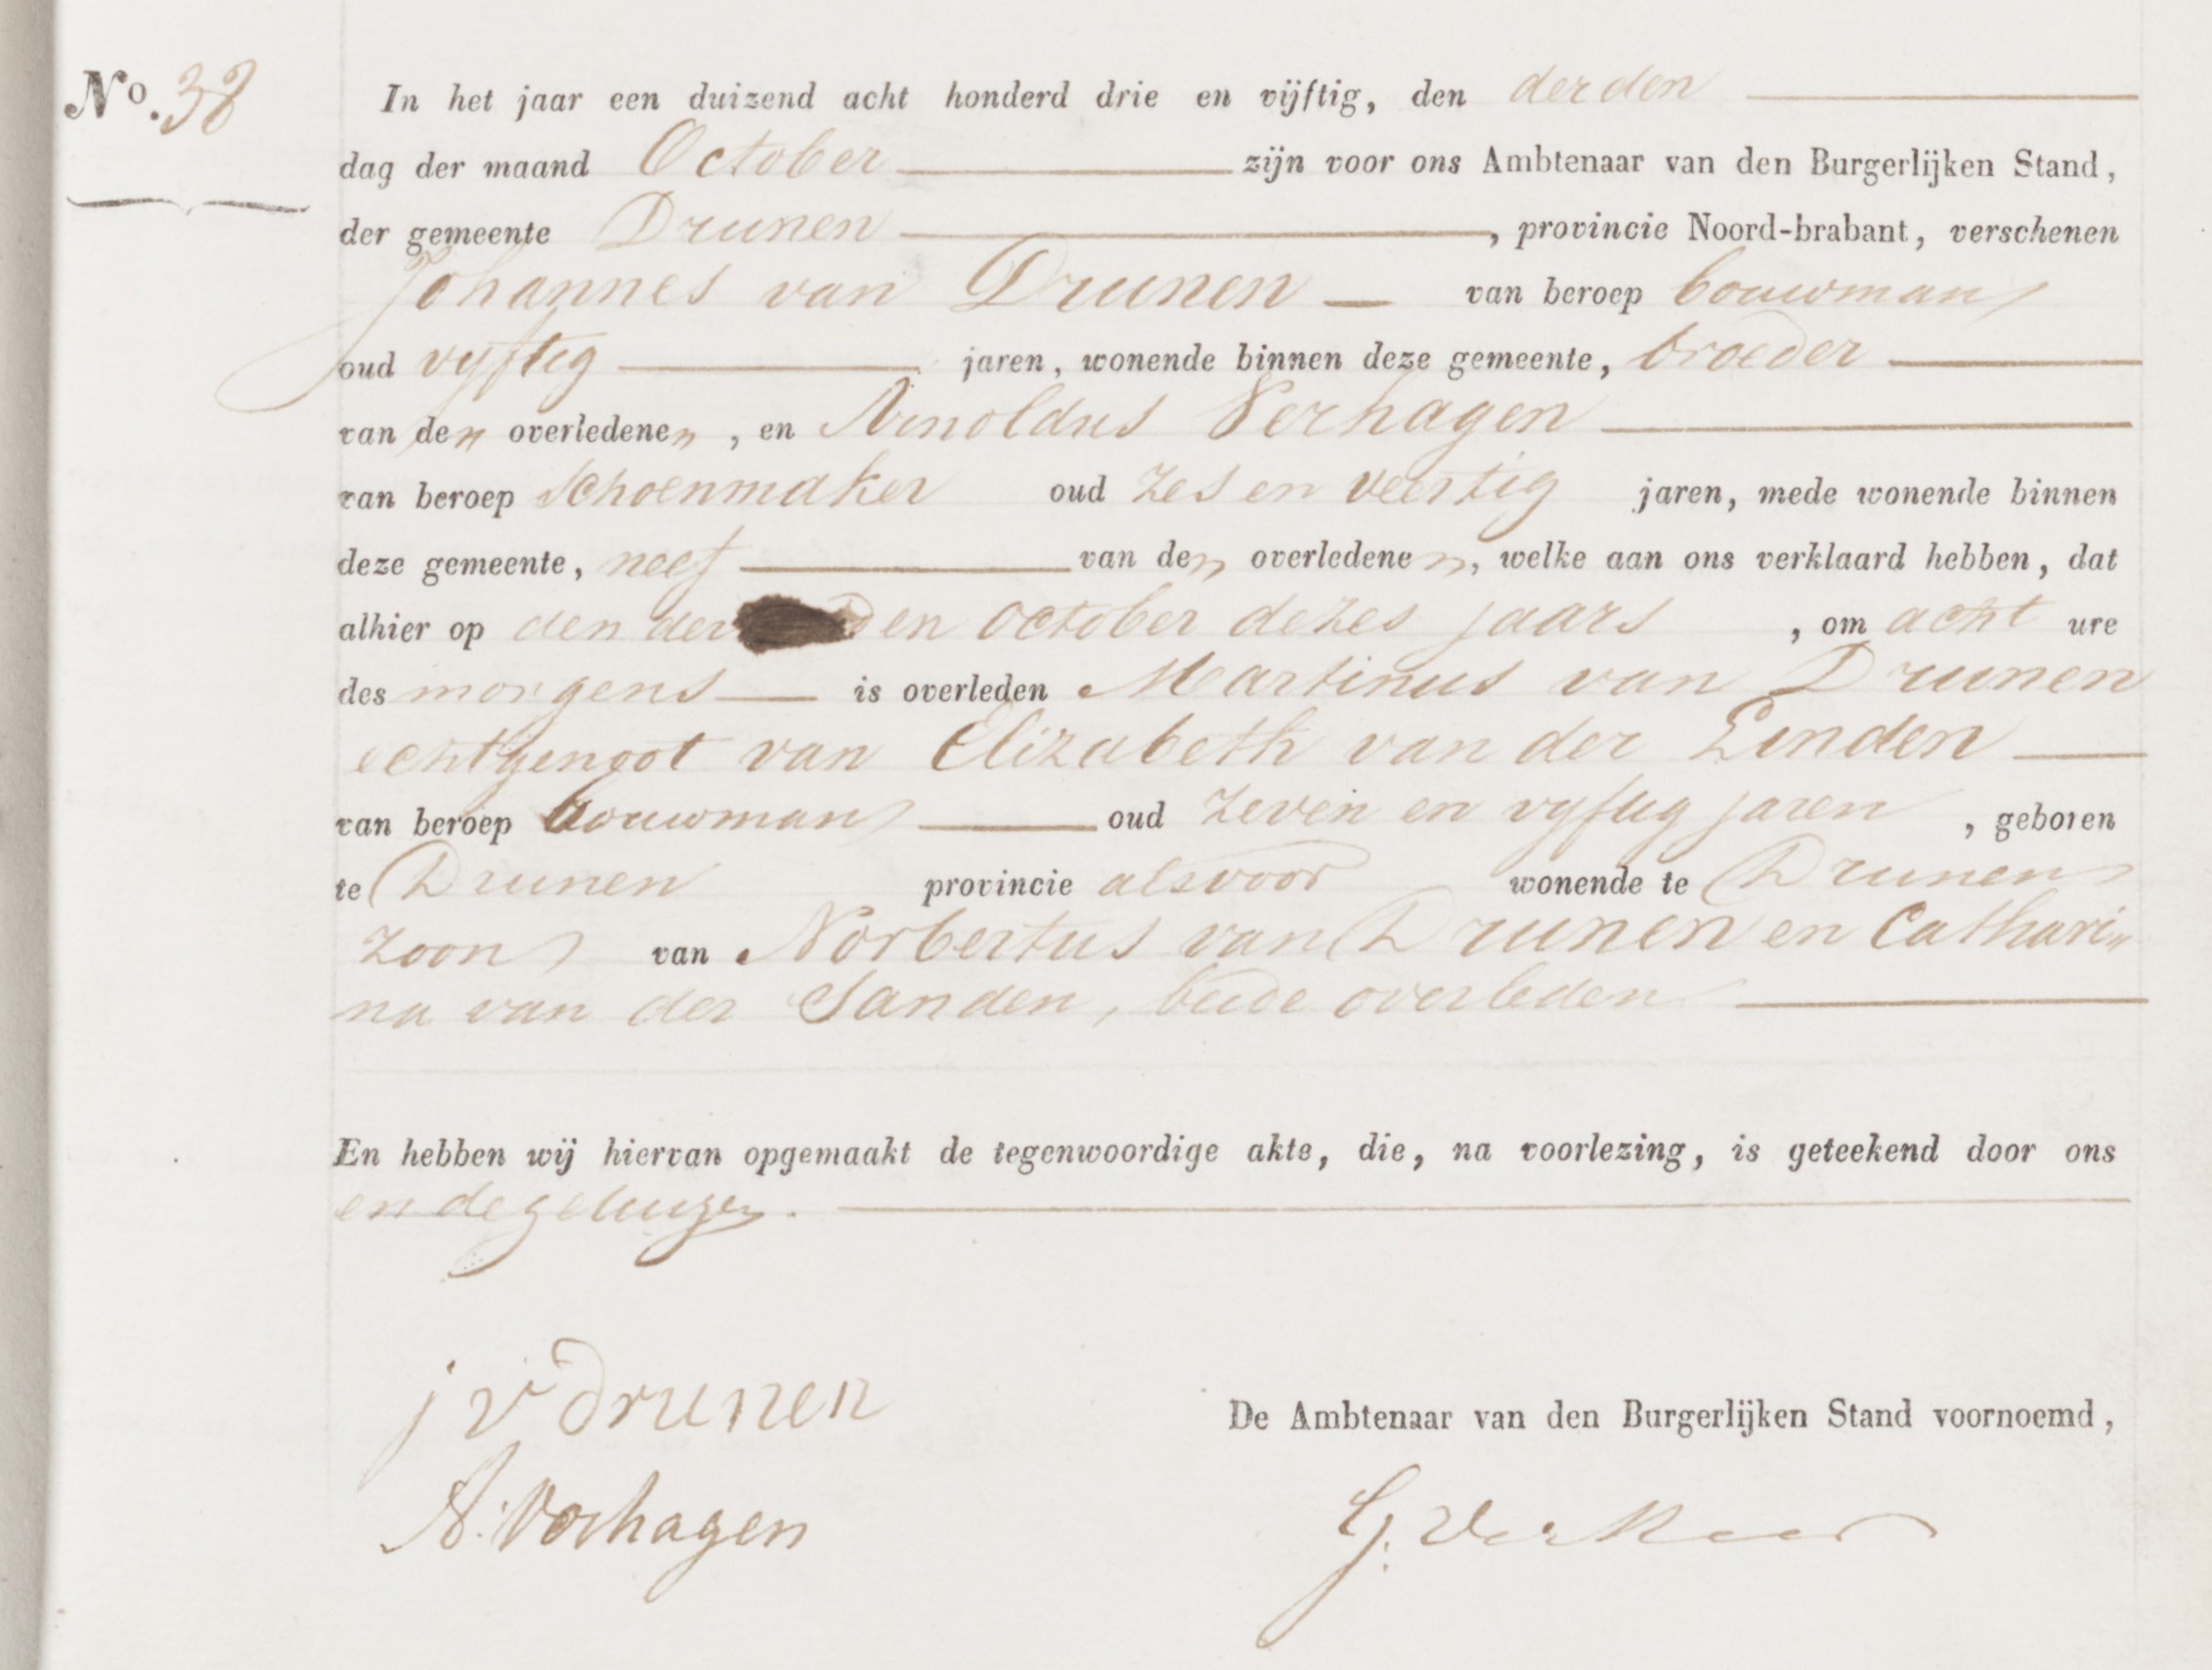 No. 38
In het jaar een duizend acht honderd drie en vijftig, den derden
dag der maand October zijn voor ons Ambtenaar van den Burgerlijken Stand,
der gemeente Drunen, provincie Noord-brabant, verschenen
Johannes van Drunen van beroep bouwman
oud vyftig jaren, wonende binnen deze gemeente, broeder
van den overledenen, en Arnoldus Verhagen
van beroep schoenmaker oud zes en veertig jaren, mede wonende binnen
deze gemeente, neef van den overledenen, welke aan ons verklaard hebben, dat
alhier op den der den October dezes jaars, om acht ure
des morgens is overleden Martinus van Drunen
echtgenoot van Elizabeth van der Linden
van beroep bouwman oud zeven en vyftig jaren, geboren
te Drunen provincie alsvoor wonende te Drunen
zoon van Norbertus van Drunen en Cathari„
na van der Sanden, beide overleden
En hebben wij hiervan opgemaakt de tegenwoordige akte, die, na voorlezing, is geteekend door ons
en de getuigen.
j v Drunen
De Ambtenaar van den Burgerlijken Stand voornoemd,
A. Verhagen
G.